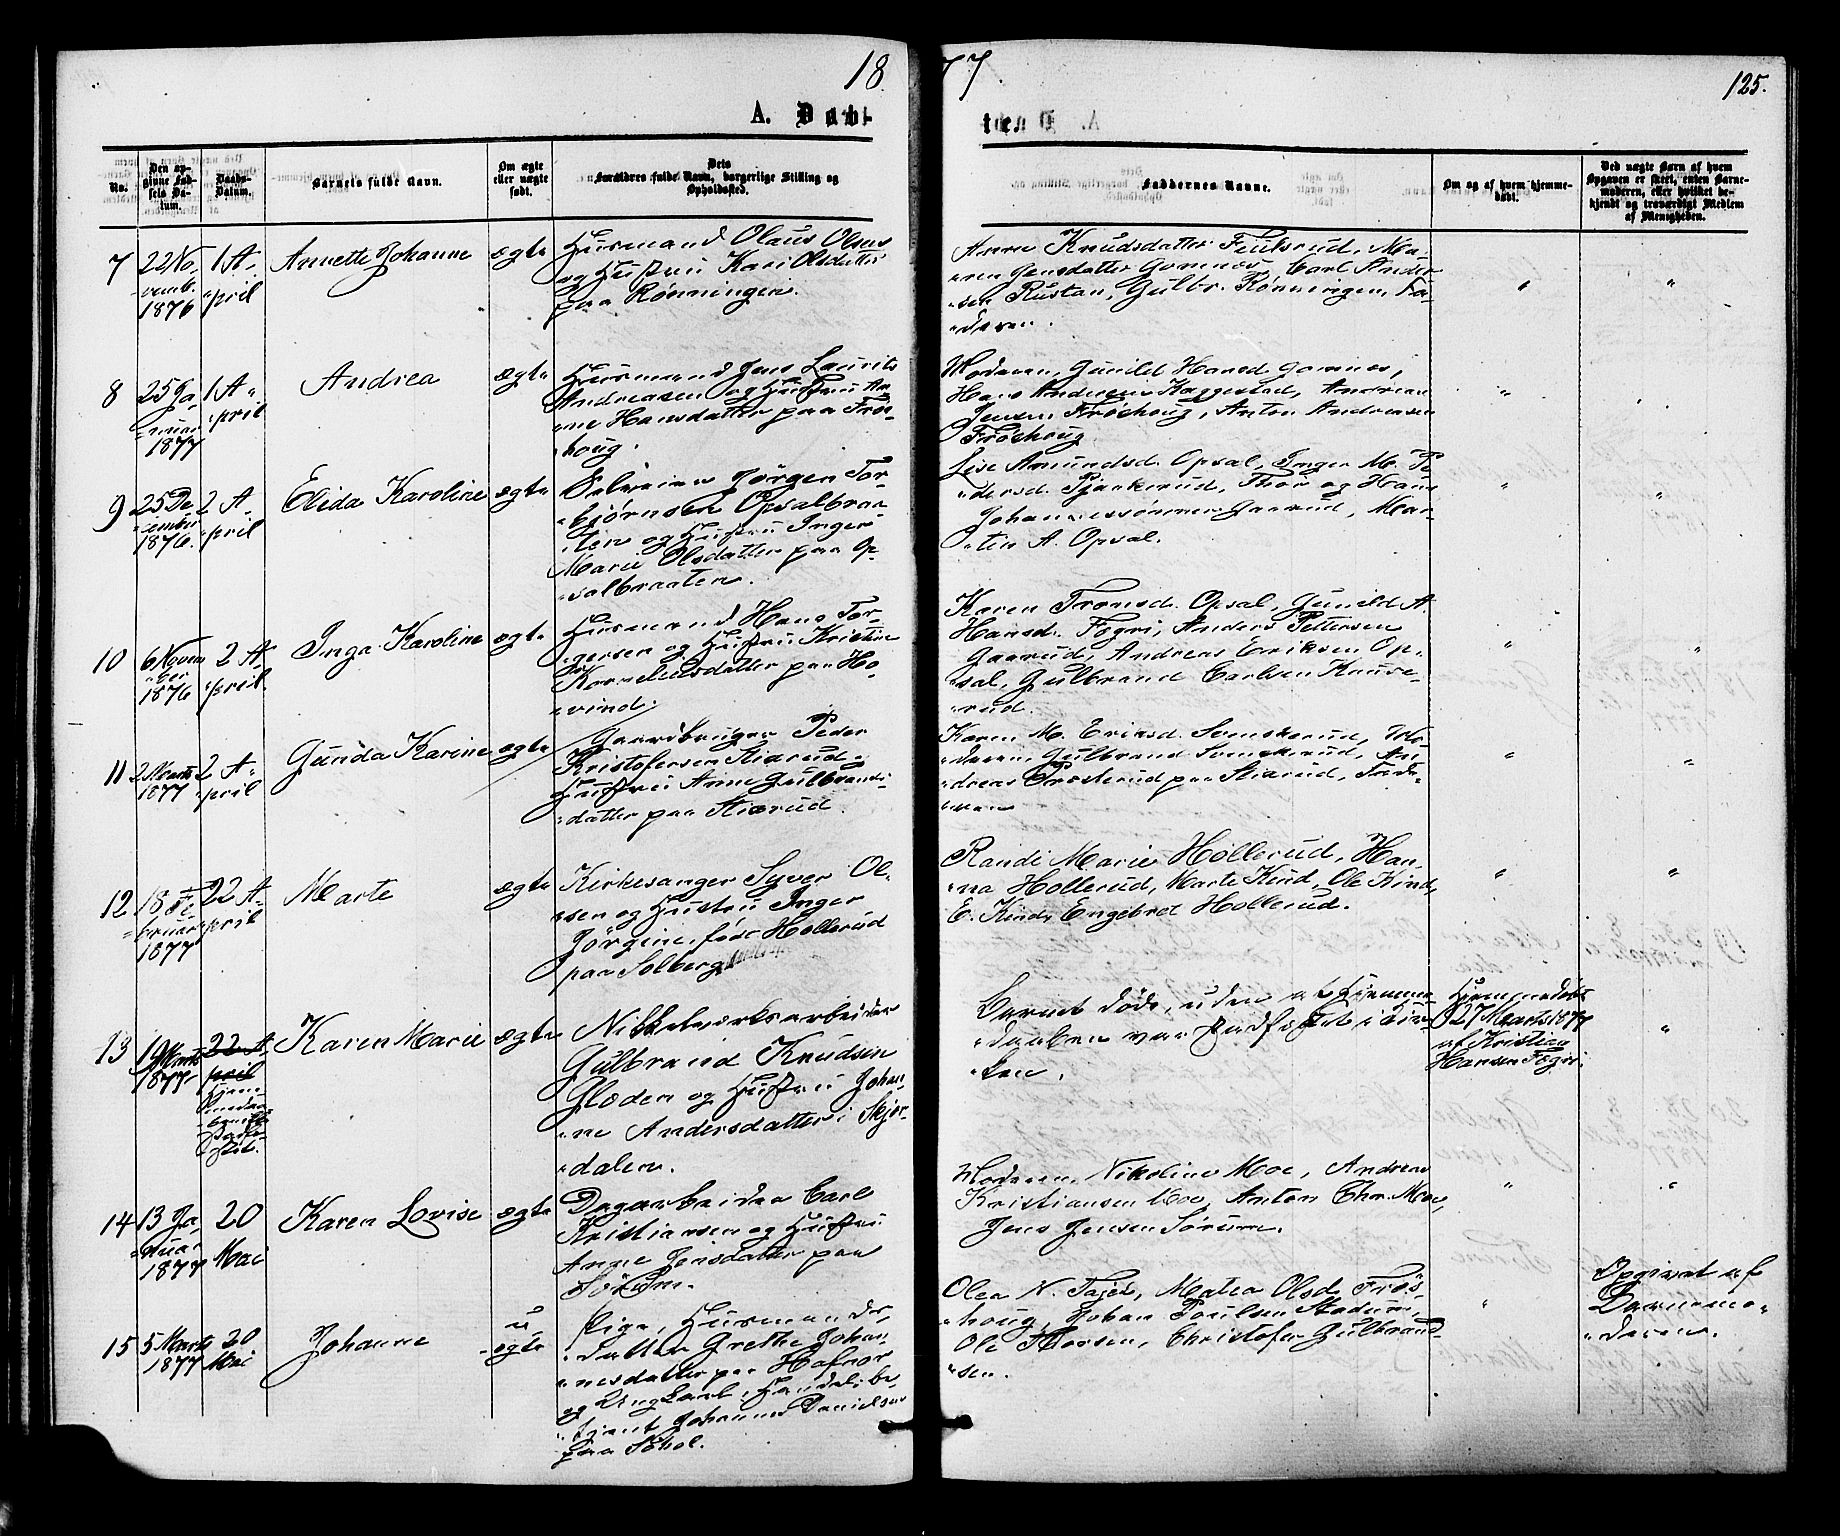 1877
125.
A. Døbte
No.
Den opgivne Fødsels Datum.
Daabs-Datum.
Barnets fulde Navn.
Om ægte eller uægte født.
Dets Forældres fulde Navn, borgerlige Stilling og Opholdssted.
Faddernes Navne.
Om og af hvem hjemmedøbt.
Ved uægte Barn af hvem Opgaven er skeet, enten Barnemoderen, eller hvilket bekjendt og troværdigt Medlem af Menigheden.
7
22 No-
vemb.
1876
1 A-
pril
Annette Johanne
ægte
Husmand Olaus Olsen
og Hustru Kari Olsdatter
paa Rønningen.
Anne Knudsdatter, Ma-
ren Jensdatter Gomnes, Carl Ander-
sen Rustan, Gulbr. Rønningen, Fa-
deren.
8
25 Ja-
nuar
1877
1 A-
pril
Andrea
ægte
Husmand Jens Laurits
Andreasen og Hustru An-
ne Hansdatter paa Frøs-
houg.
Moderen, Gunild Hansd. Gomnes,
Hans Andersen Kaggestad, Andreas
Jensen Frøshoug, Anton Andreasen
Frøshoug
9
25 De-
cember
1876.
2 A-
pril
Elida Karoline
ægte
Selveier Jørgen Tor-
bjørnsen Opsalbraa-
ten og Hustru Inger
Marie Olsdatter paa Op-
salbraaten.
Lise Amundsd. Opsal, Inger M. Pe-
dersd. Bjærkerud, Thor og Hans
Johannessønner Gaarud, Mar-
tin A. Opsal.
10
6 Novem-
ber
1876
2 A-
pril
Inga Karoline
ægte
Husmand Hans Tor-
gersen og Hustru Kristine
Korneliusdatter paa Ho-
vind.
Karen Tronsd. Opsal, Gunild A.
Hansd. Fogri, Anders Pettersen
Gaarud, Andreas Eriksen Op-
sal, Gulbrand Carlsen Knuse-
rud.
11
2 Marts
1877
2 A-
pril
Gunda Karine
ægte
Gaardbruger Peder
Kristofersen Stiærud og
Hustru Anne Gulbrands-
datter paa Stiærud.
Karen M. Eriksd. Svenskerud, Mo-
deren, Gulbrand Svenskerud, An-
dreas Prøsterud paa Stiærud, Fade-
ren
12
18 Fe-
bruar
1877
22 A-
pril
Marte
ægte
Kirkesanger Syver Ol-
sen og Hustru Inger
Jørgine, født Hollerud
paa Solberg
Randi Marie Hollerud, Han-
na Hollerud, Marte Kind, Ole Kind,
E. Kind, Engebret Hollerud.
13
19 Marts
1877
22 A-
pril
Hjem-
medaa-
ben ikke
stadfæ-
stet.
Karen Marie
ægte
Nikkelværksarbeider
Gulbrand Knudsen
Gloden og Hustru Johan-
ne Andersdatter i Skjør-
dalen.
Barnet døde, uden at Hjemme-
daaben var stadfæstet i Kir-
ken.
Hjemmedøbt
27 Marts 1877
af Kristian
Hansen Fogri.
14
13 Ja-
nuar
1877
20
Mai
Karen Lovise
ægte
Dagarbeider Carl
Kristiansen og Hustru
Anne Jensdatter paa
Sørum.
Moderen, Nikoline Moe, Andreas
Kristiansen Moe, Anton Chr. Moe,
Jens Jensen Sørum.
15
5 Marts
1877
20
Mai
Johanne
u
ægte
Pige, Husmands-
datter Grethe Johan-
nesdatter paa Hafnor
og Ungkarl, Handelsbe-
tjent Johannes Danielsen
paa Sohol.
Olea N., Matea Olsd. Frøs-
houg, Johan Poulsen Stadum,
Ole Thorsen, Christofer Gulbrand-
sen.
Opgivet af
Barnemo-
deren.